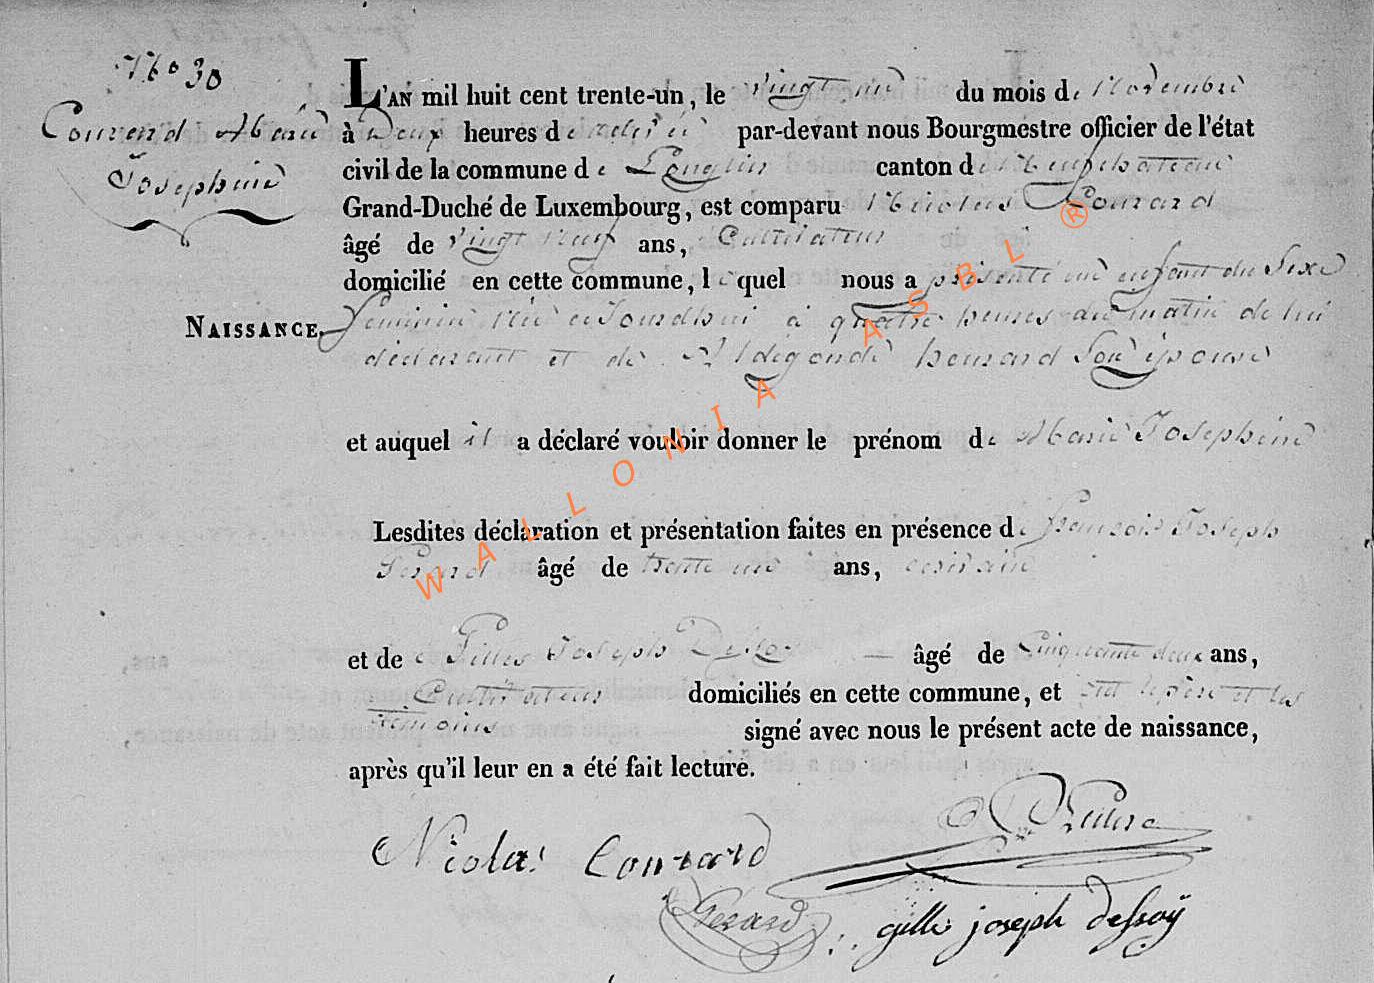 N° 30
Conrard Marie
Josephine
L'AN mil huit cent trente-un, le vingt un du mois de Novembre
à Deux heures de relevée par-devant nous Bourgmestre officier de l'état
civil de la commune de Longlier canton de Neufchateau
Grand-Duché de Luxembourg, est comparu Nicolas Conrard
âgé de vingt neuf ans, Cultivateur
domicilié en cette commune, lequel nous a présenté un enfant du Sexe
NAISSANCE. feminin née aujourdhui à quatre heures du matin de lui
déclarant et de Aldegonde honrard Son épouse
et auquel il a déclaré vouloir donner le prénom de Marie Josephine
Lesdites déclaration et présentation faites en présence de francois Joseph
Gerard âgé de trente un ans,
et de Gilles Joseph Dessoy âgé de Cinquante deux ans,
Cultivateur domiciliés en cette commune, et ont le père et les
temoins signé avec nous le présent acte de naissance,
après qu'il leur en a été fait lecture.
Nicolas Conrard
Gerard
gille joseph dessoÿ
WALLONIA ASBL ®